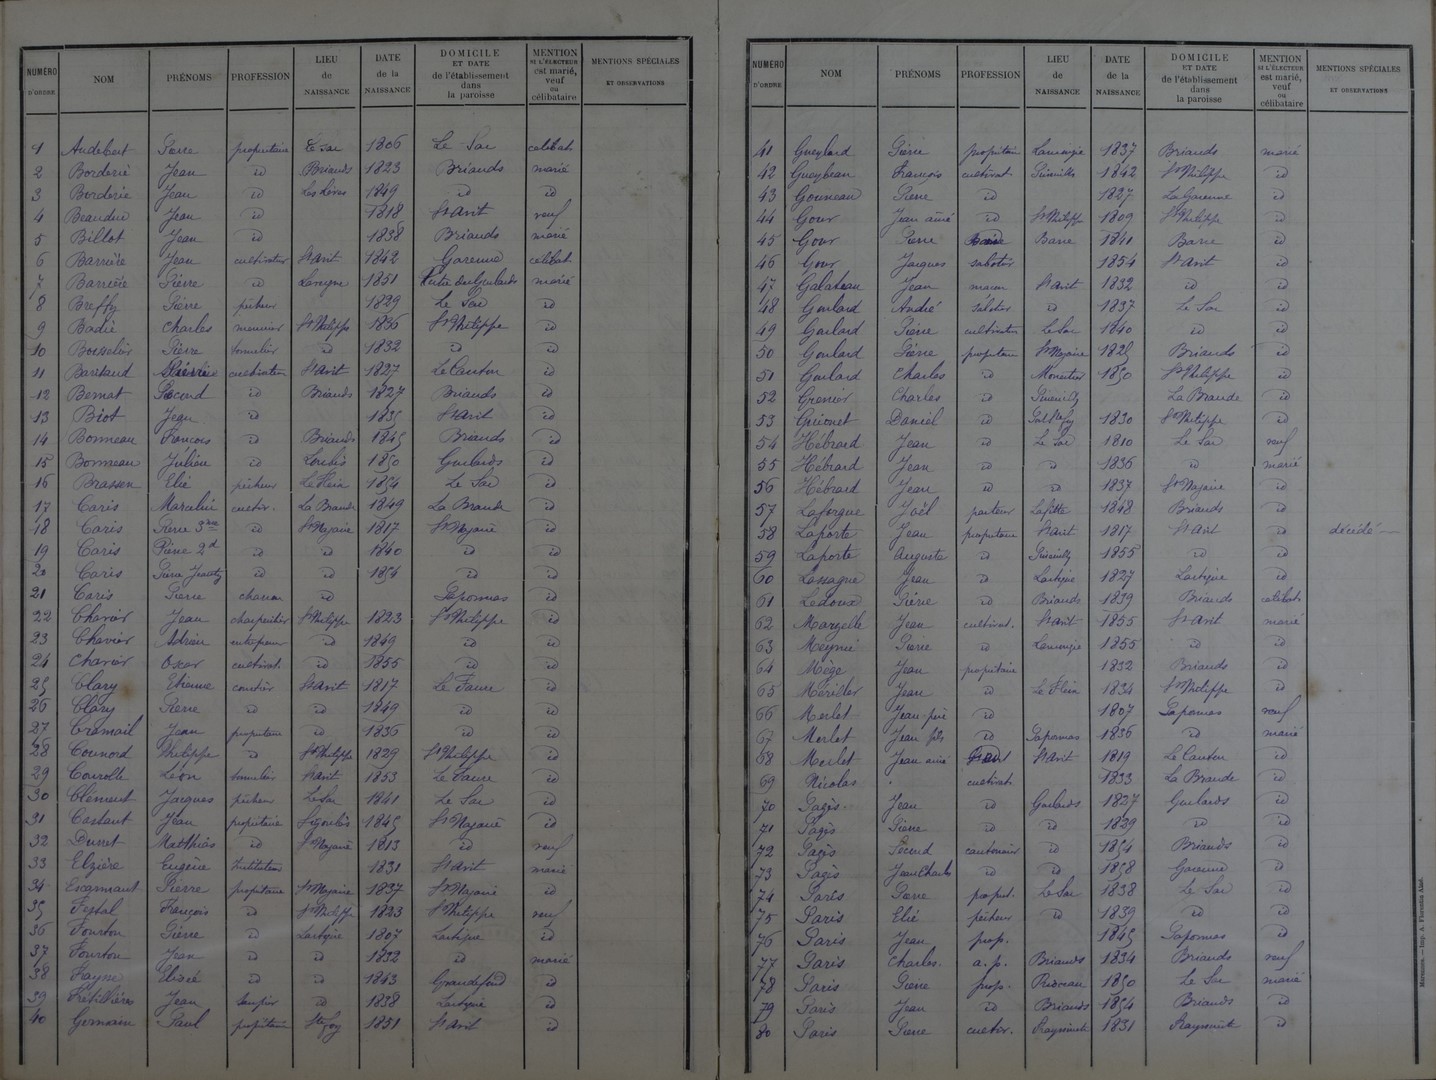 NUMÉRO D'ORDRE | NOM | PRÉNOMS | PROFESSION | LIEU de NAISSANCE | DATE de la NAISSANCE | DOMICILE ET DATE de l'établissement dans la paroisse | MENTION SI L'ÉLECTEUR est marié, veuf ou célibataire | MENTIONS SPÉCIALES ET OBSERVATIONS
1 Audebert Pierre propriétaire Le Sac 1806 Le Sac célibat.
2 Borderie Jean id Briands 1823 Briands marié
3 Borderie Jean id Les Lèves 1849 id id
4 Beaudu Jean id 1818 St Avit veuf
5 Billot Jean id 1838 Briands marié
6 Barrière Jean cultivateur St Avit 1842 Garenne célibat
7 Barrière Pierre id 1851 marié
8 Breffy Pierre pêcheur 1829 Le Sac id
9 Badie Charles meunier St Philippe 1836 St Philippe id
10 Bosseloir Pierre tonnelier id 1832 id id
11 Baritaud cultivateur St Avit 1827 Le Canton id
12 Bernat Second id Briands 1827 Briands id
13 Biot Jean id 1835 St Avit id
14 Bonneau François id Briands 1845 Briands id
15 Bonneau Julien id Loubès 1850 Goulards id
16 Brassen Elie pêcheur Le Fleix 1854 Le Sac id
17 Caris Marcelin cultiv. La Braude 1849 La Braude id
18 Caris Pierre id St Nazaire 1817 St Nazaire id
19 Caris Pierre 2d id id 1840 id id
20 Caris Pierre id id 1854 id id
21 Caris Pierre charron id Paponnas id
22 Charrier Jean charpentier St Philippe 1823 St Philippe id
23 Charrier Adrien entrepreneur id 1849 id id
24 Charrier Oscar cultivat. id 1855 id id
25 Clary Etienne St Avit 1817 Le Faure id
26 Clary Pierre id id 1849 id id
27 Cramail Jean propriétaire id 1836 id id
28 Counord Philippe id St Philippe 1829 St Philippe id
29 Courolle Léon tonnelier St Avit 1853 Le Faure id
30 Clément Jacques pêcheur Le Sac 1841 Le Sac id
31 Castaut Jean propriétaire Ligoulès 1845 St Nazaire id
32 Durret Matthias id St Nazaire 1813 id veuf
33 Elzière Eugène Instituteur 1831 St Avit marié
34 Escarmant Pierre propriétaire St Nazaire 1837 St Nazaire id
35 Festal François id St Philippe 1823 St Philippe veuf
36 Fourton Pierre id Lartigue 1807 Lartigue id
37 Fourton Jean id id 1832 id marié
38 Fayne Elisée id id 1843 Grandefond id
39 Fretillières Jean id 1838 Lartigue id
40 Germain Paul propriétaire Ste Foy 1851 St Avit id
NUMÉRO D'ORDRE | NOM | PRÉNOMS | PROFESSION | LIEU de NAISSANCE | DATE de la NAISSANCE | DOMICILE ET DATE de l'établissement dans la paroisse | MENTION SI L'ÉLECTEUR est marié, veuf ou célibataire | MENTIONS SPÉCIALES ET OBSERVATIONS
41 Gueylard Pierre propriétaire Lamonzie 1837 Briands marié
42 Gueylean François cultivat. 1842 St Philippe id
43 Gouneau Pierre id 1827 La Garenne id
44 Gour Jean aîné id St Philippe 1809 St Philippe id
45 Gour Pierre Barre 1841 Barre id
46 Gour Jacques sabotier 1854 St Avit id
47 Galateau Jean maçon St Avit 1832 id id
48 Goulard André sabotier id 1837 Le Sac id
49 Goulard Pierre cultivateur Le Sac 1840 id id
50 Goulard Pierre propriétaire St Nazaire 1825 Briands id
51 Goulard Charles id Monestier 1850 St Philippe id
52 Grenier Charles id Pineuilh La Braude id
53 Guionet Daniel id Port Ste Foy 1830 St Philippe id
54 Hébrard Jean id Le Sac 1810 Le Sac veuf
55 Hébrard Jean id id 1836 id marié
56 Hébrard Jean id id 1837 St Nazaire id
57 Laforgue Joël pasteur Lafitte 1848 Briands id
58 Laporte Jean propriétaire St Avit 1817 St Avit id décédé
59 Laporte Auguste id Pineuilh 1855 id id
60 Lassagne Jean id Lartigue 1827 Lartigue id
61 Ledoux Pierre id Briands 1839 Briands célibat.
62 Margelle Jean cultivat. St Avit 1855 St Avit marié
63 Meynié Pierre id Lamonzie 1855 id id
64 Mège Jean propriétaire 1832 Briands id
65 Jean id Le Fleix 1834 St Philippe id
66 Merlet Jean père id 1807 Paponnas veuf
67 Merlet Jean fils id Paponnas 1836 id marié
68 Merlet Jean aîné St Avit 1819 Le Canton id
69 Nicolas cultivat. 1833 La Braude id
70 Pagès Jean id Goulards 1827 Goulards id
71 Pagès Pierre id id 1829 id id
72 Pagès Second cantonnier id 1854 Briands id
73 Pagès Jean Charles id id 1858 Garenne id
74 Paris Pierre propriét. Le Sac 1838 Le Sac id
75 Paris Elié pêcheur id 1839 id id
76 Paris Jean prop. 1845 Paponnas id
77 Paris Charles. a.p. Briands 1834 Briands veuf
78 Paris Pierre prop. 1850 Le Sac marié
79 Paris Jean id Briands 1854 Briands id
80 Paris Pierre cultiv. 1831 id
Marennes. — Imp. A. Florentin Aîné.